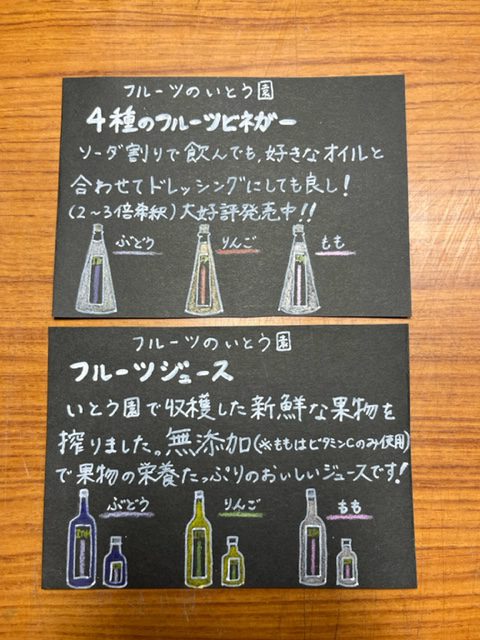 フルーツのいとう園
4種のフルーツビネガー
ソーダ割りで飲んでも、好きなオイルと
合わせてドレッシングにしても良し!
(2〜3倍希釈)大好評発売中!!
ぶどう りんご もも
フルーツのいとう園
フルーツジュース
いとう園で収穫した新鮮な果物を
搾りました。無添加(※ももはビタミンCのみ使用)
で果物の栄養たっぷりのおいしいジュースです!
ぶどう りんご もも